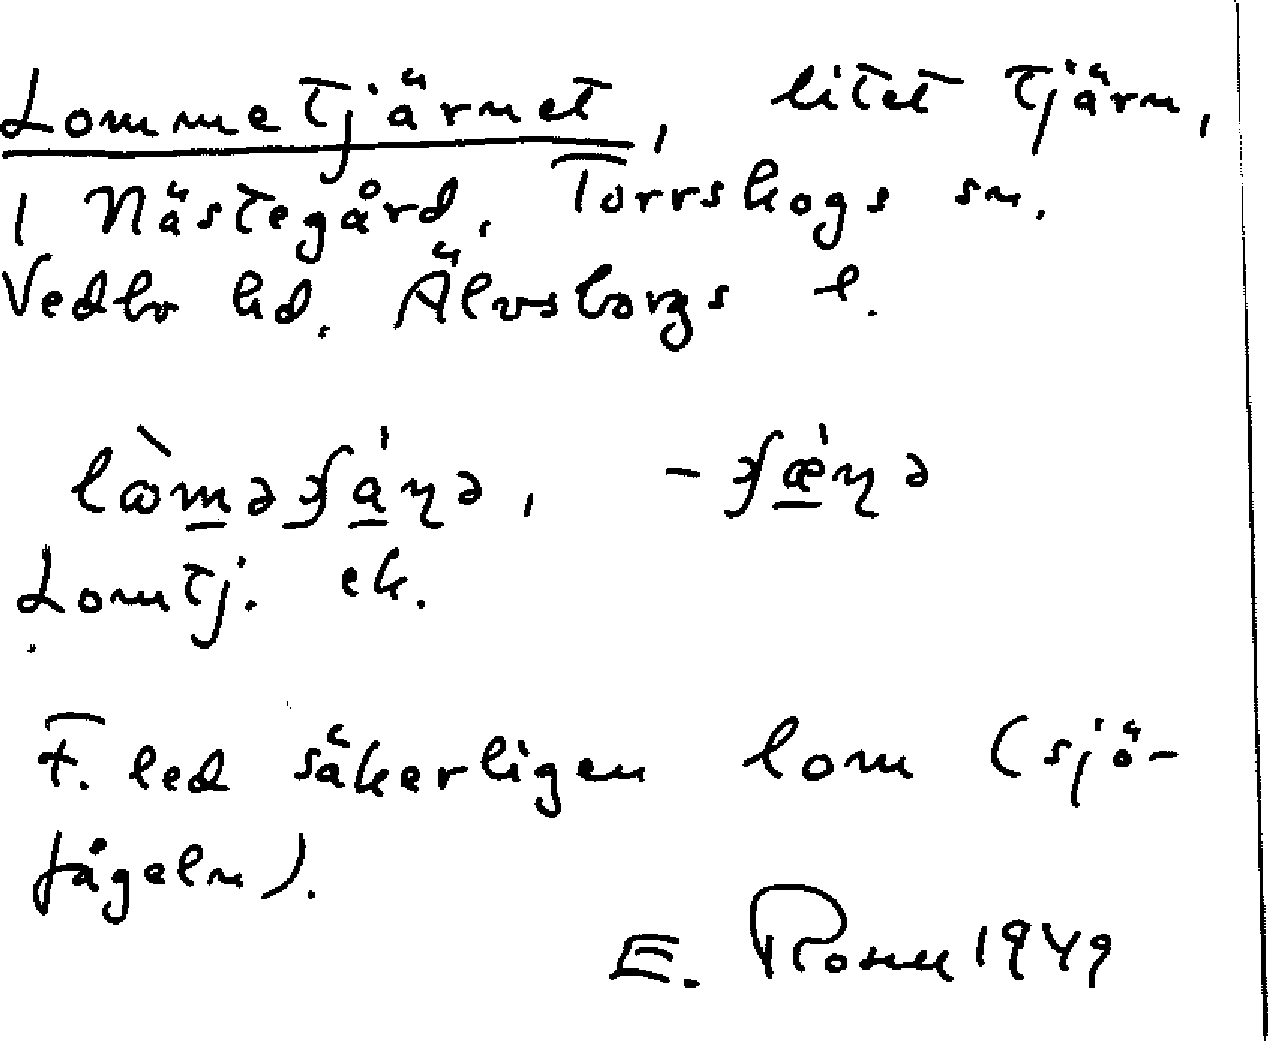 Lommetjärnet, litet tjärn,
i Nästegård, Torrskogs sn.
Vedbo hd. Älvsborgs l.
Lomtj. ek.
F. led säkerligen lom (sjö-
fågeln).
E. 1949